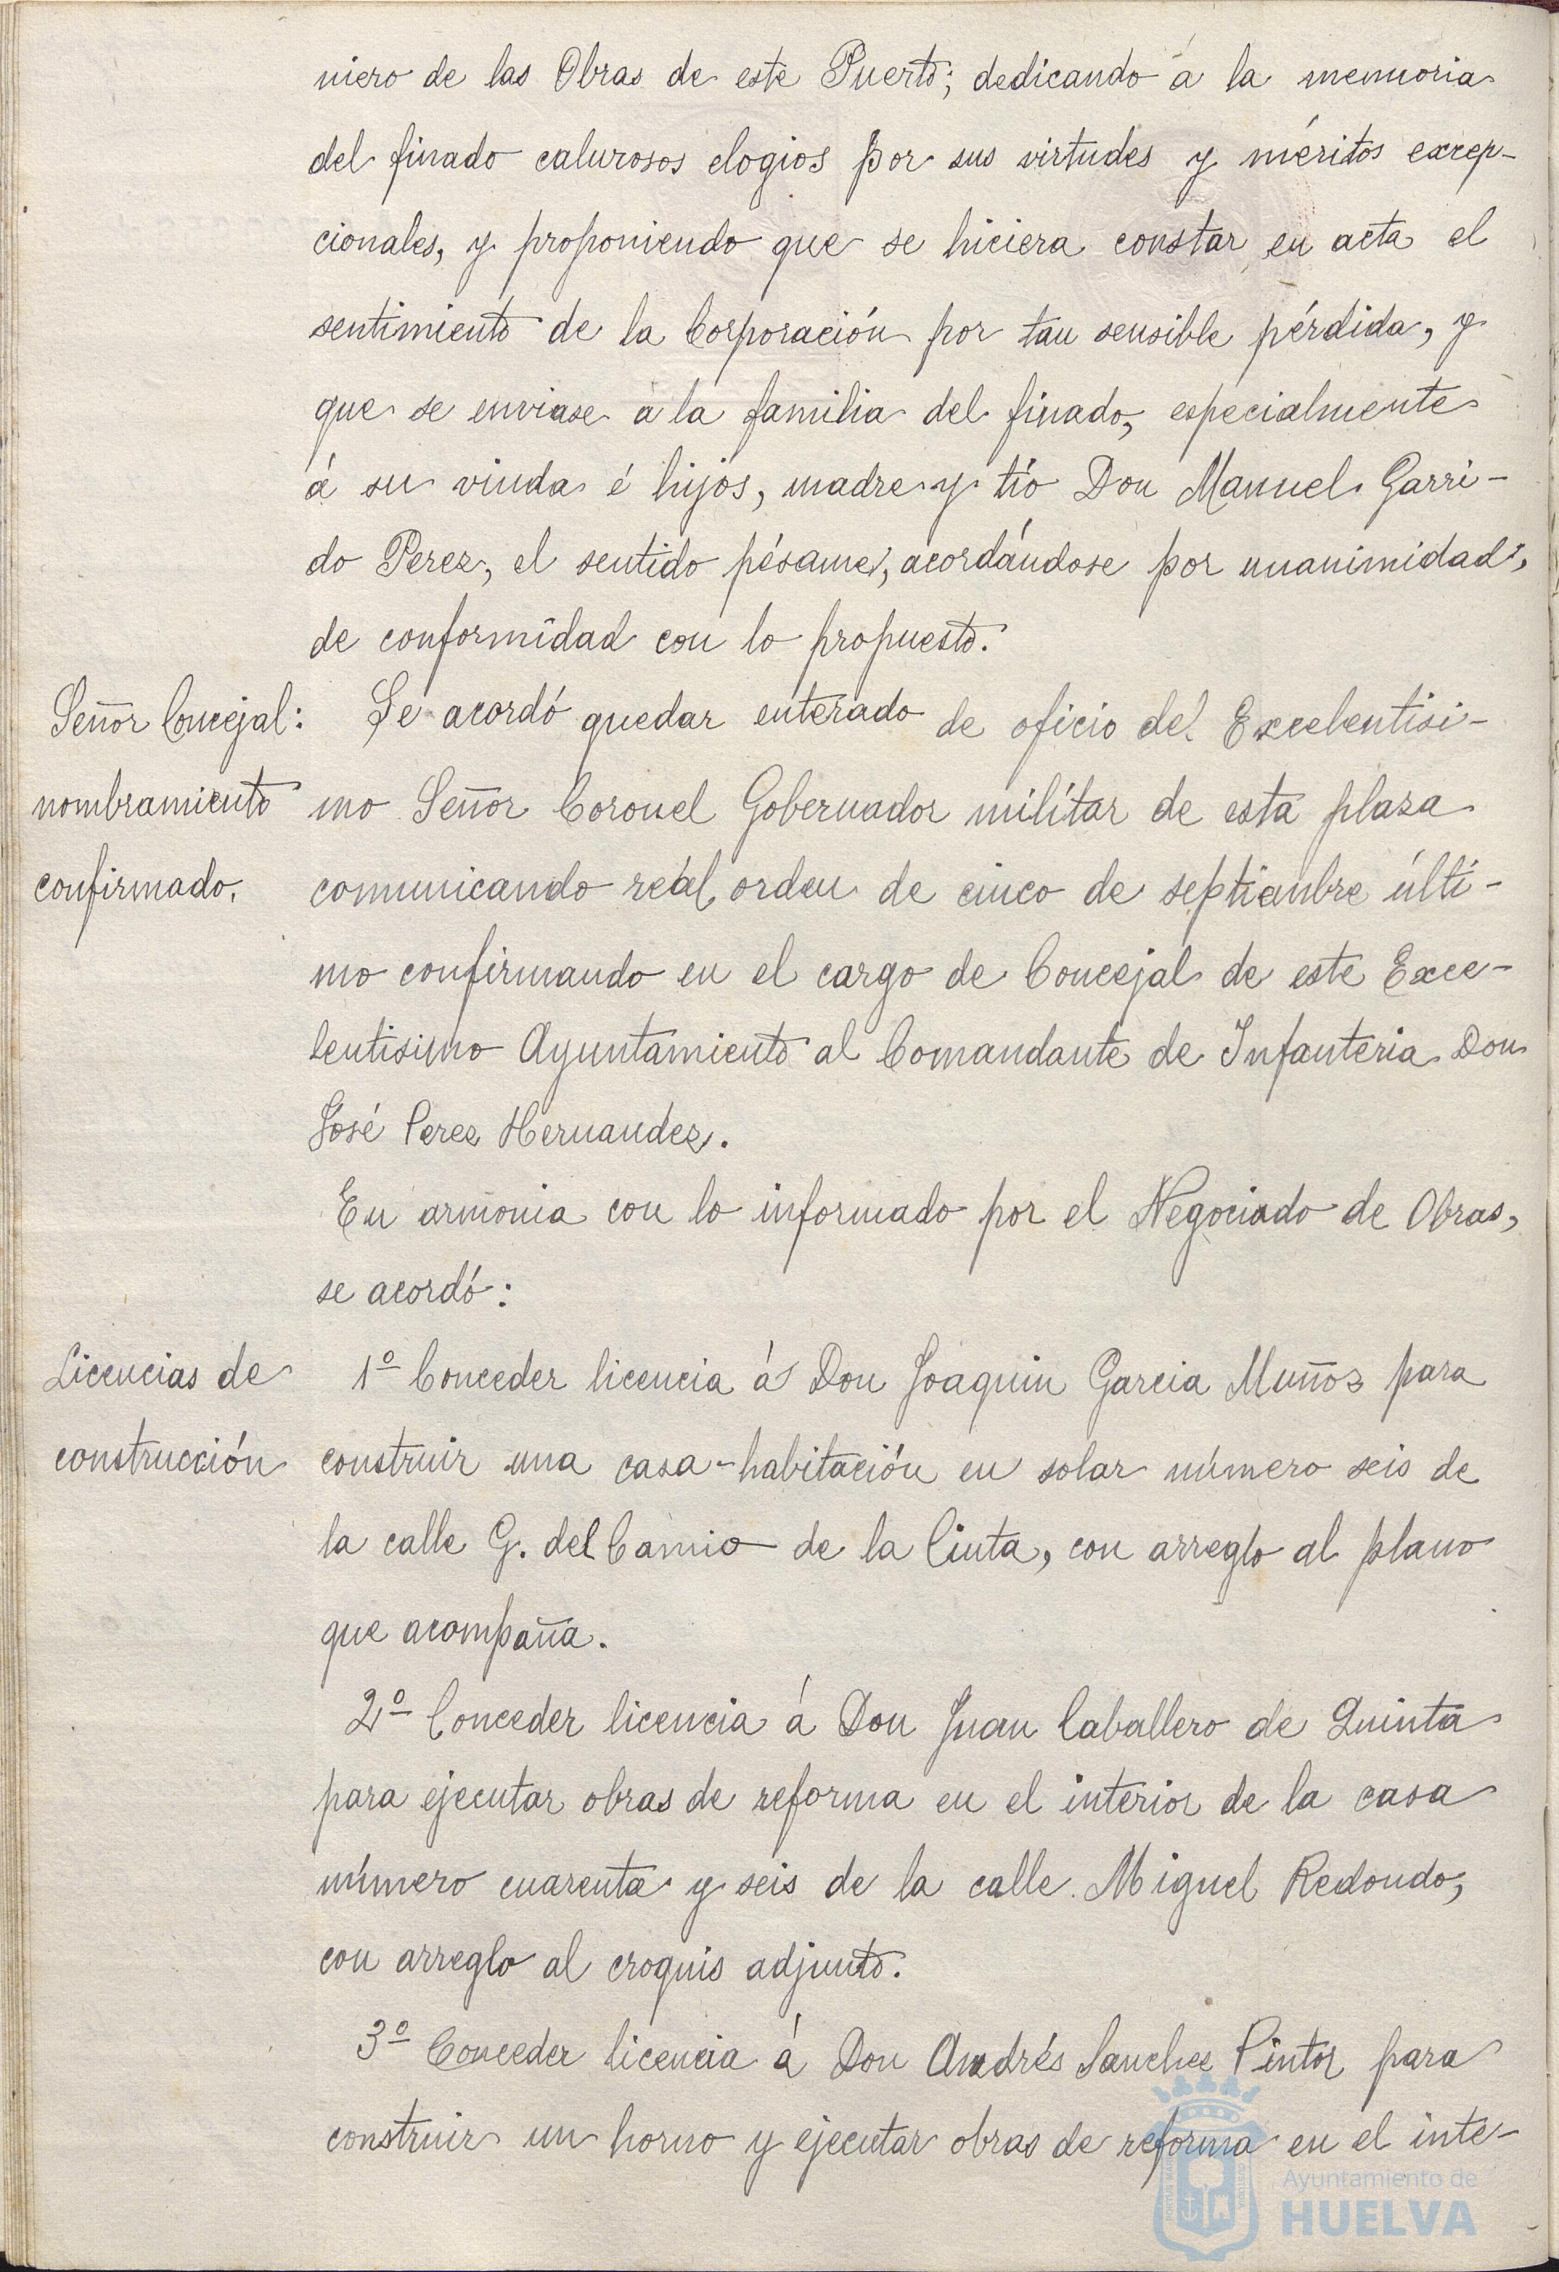 niero de las Obras de este Puerto; dedicando á la memoria
del finado calurosos elogios por sus virtudes y méritos excep-
cionales, y proponiendo que se hiciera constar en acta el
sentimiento de la Corporación por tan sensible pérdida, y
que se enviase á la familia del finado, especialmente
á su viuda é hijos, madre y tío Don Manuel Garri-
do Perez, el sentido pésame, acordándose por unanimidad,
de conformidad con lo propuesto.
Señor Concejal:
nombramiento
confirmado.
Se acordó quedar enterado de oficio del Excelentisi-
mo Señor Coronel Gobernador militar de esta plaza
comunicando real orden de cinco de septiembre últi-
mo confirmando en el cargo de Concejal de este Exce-
lentisimo Ayuntamiento al Comandante de Infanteria Don
José Perez Hernandez.
En armonia con lo informado por el Negociado de Obras,
se acordó:
Licencias de
construcción
1º Conceder licencia á Don Joaquin Garcia Muñoz para
construir una casa-habitación en solar número seis de
la calle G. del Camio de la Cinta, con arreglo al plano
que acompaña.
2º Conceder licencia á Don Juan Caballero de Quinta
para ejecutar obras de reforma en el interior de la casa
número cuarenta y seis de la calle Miguel Redondo,
con arreglo al croquis adjunto.
3º Conceder licencia á Don Andrés Sanchez Pintor para
construir un horno y ejecutar obras de reforma en el inte-
Ayuntamiento de
HUELVA